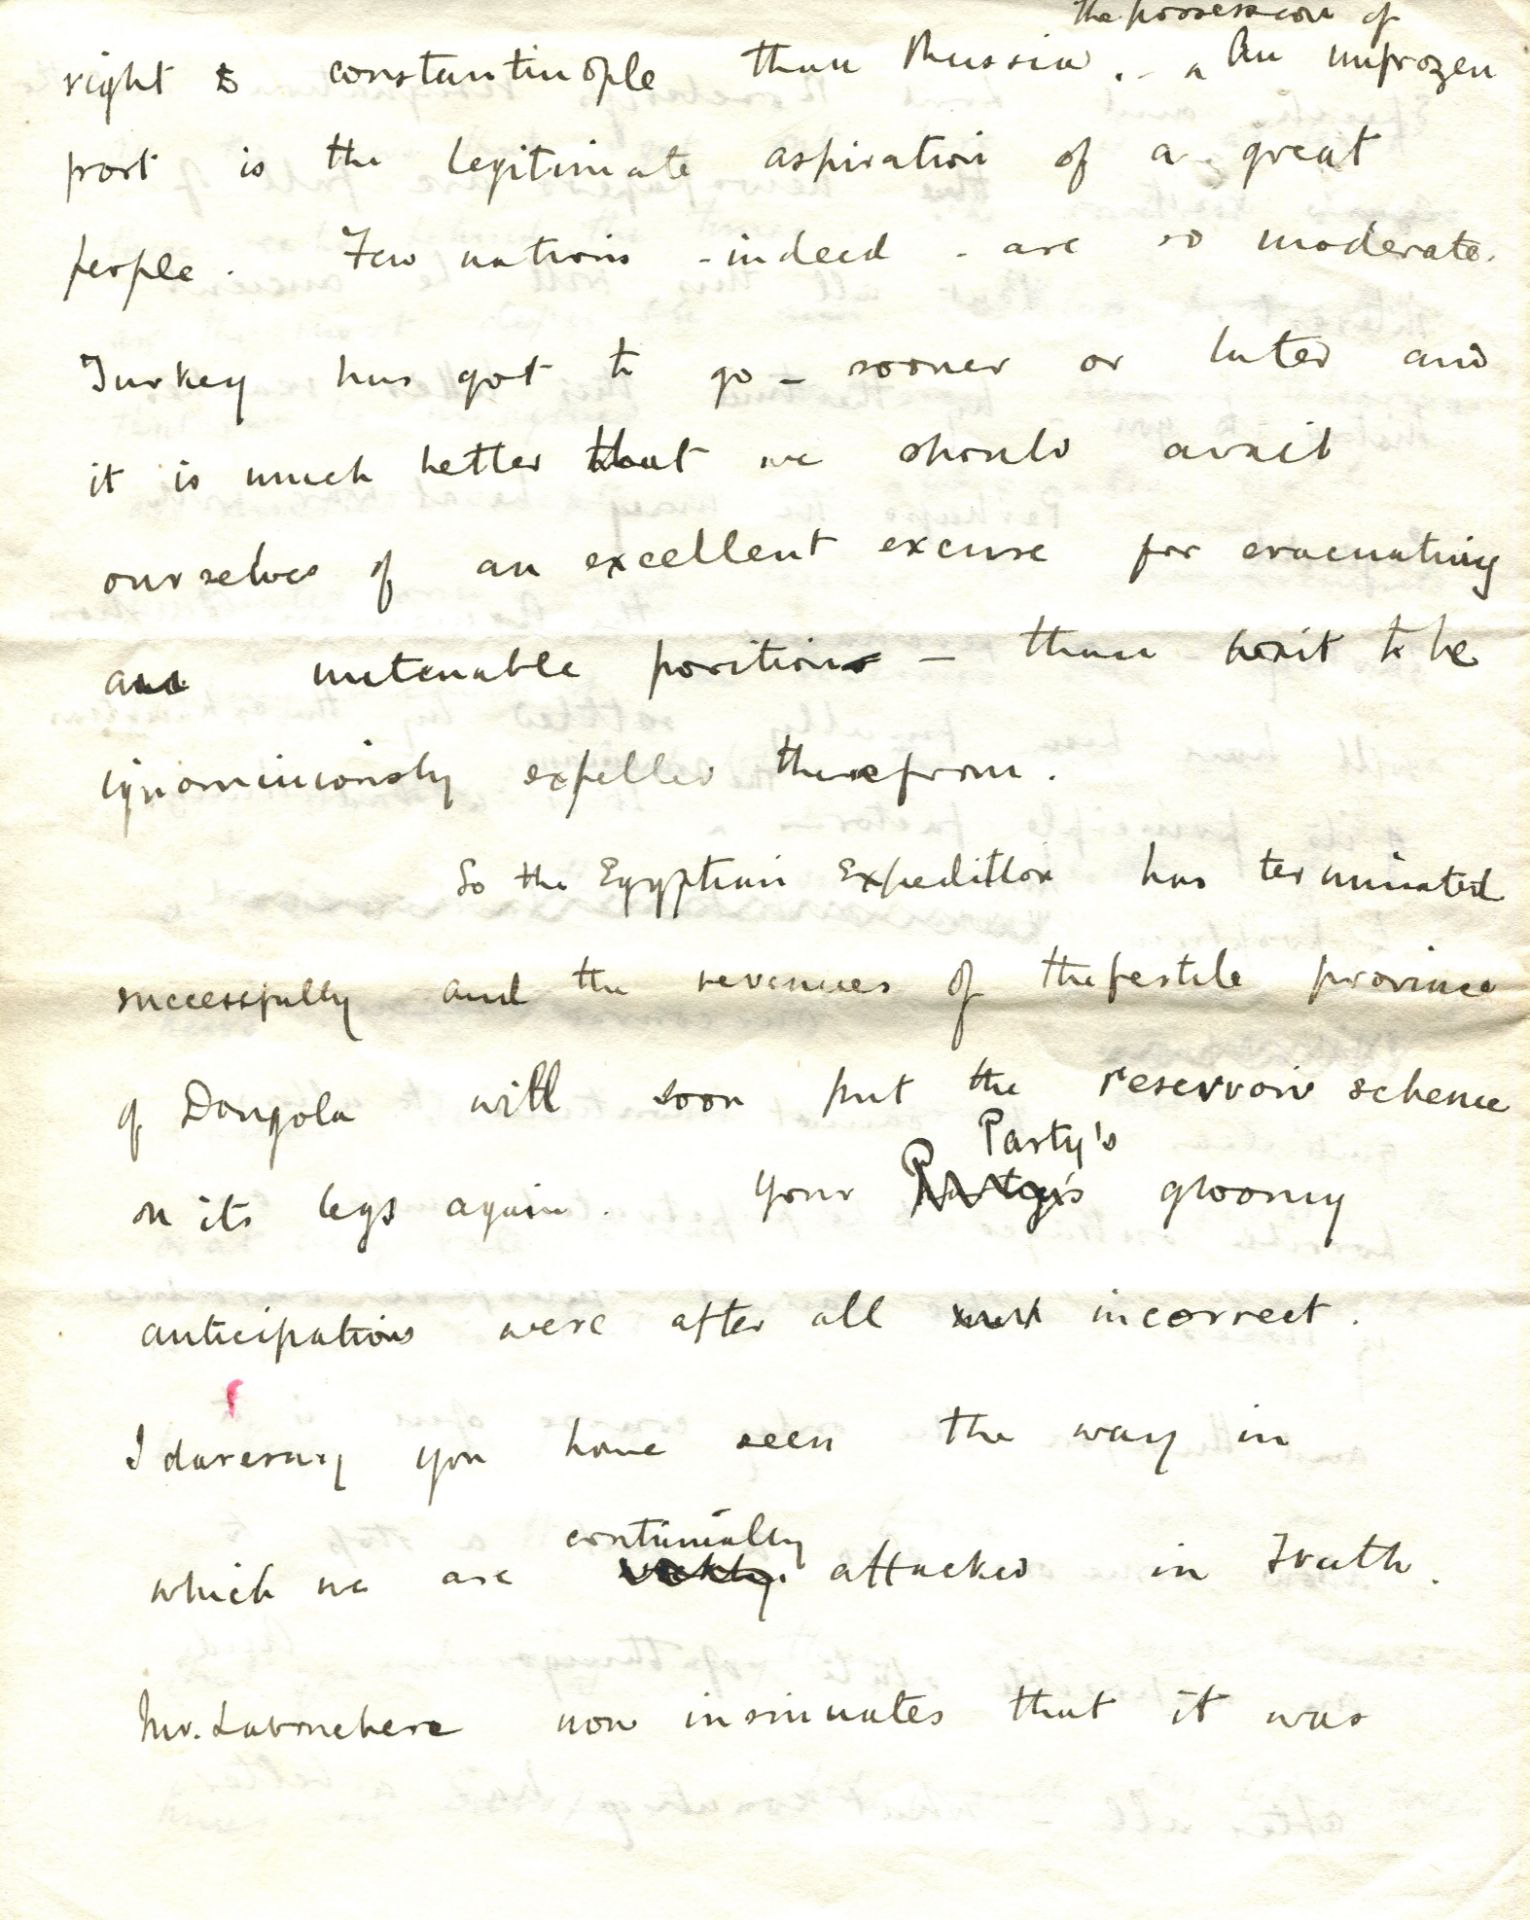 the possession of
right to constantinople than Russia. - ^ An unfrozen
port is the legitimate aspiration of a great
people. Few nations - indeed - are so moderate.
Turkey has got to go - sooner or later and
it is much better that we should avail
ourselves of an excellent excuse for evacuating
an untenable position - than wait to be
ignominiously expelled therefrom.
So the Egyptian Expedition has terminated
successfully and the revenues of the fertile province
of Dongola will soon put the reservoir scheme
Party's
on its legs again. Your Party's gloomy
anticipations were after all incorrect.
I daresay you have seen the way in
continually
which we are attacked in Truth.
Mr. Labouchere now insinuates that it was